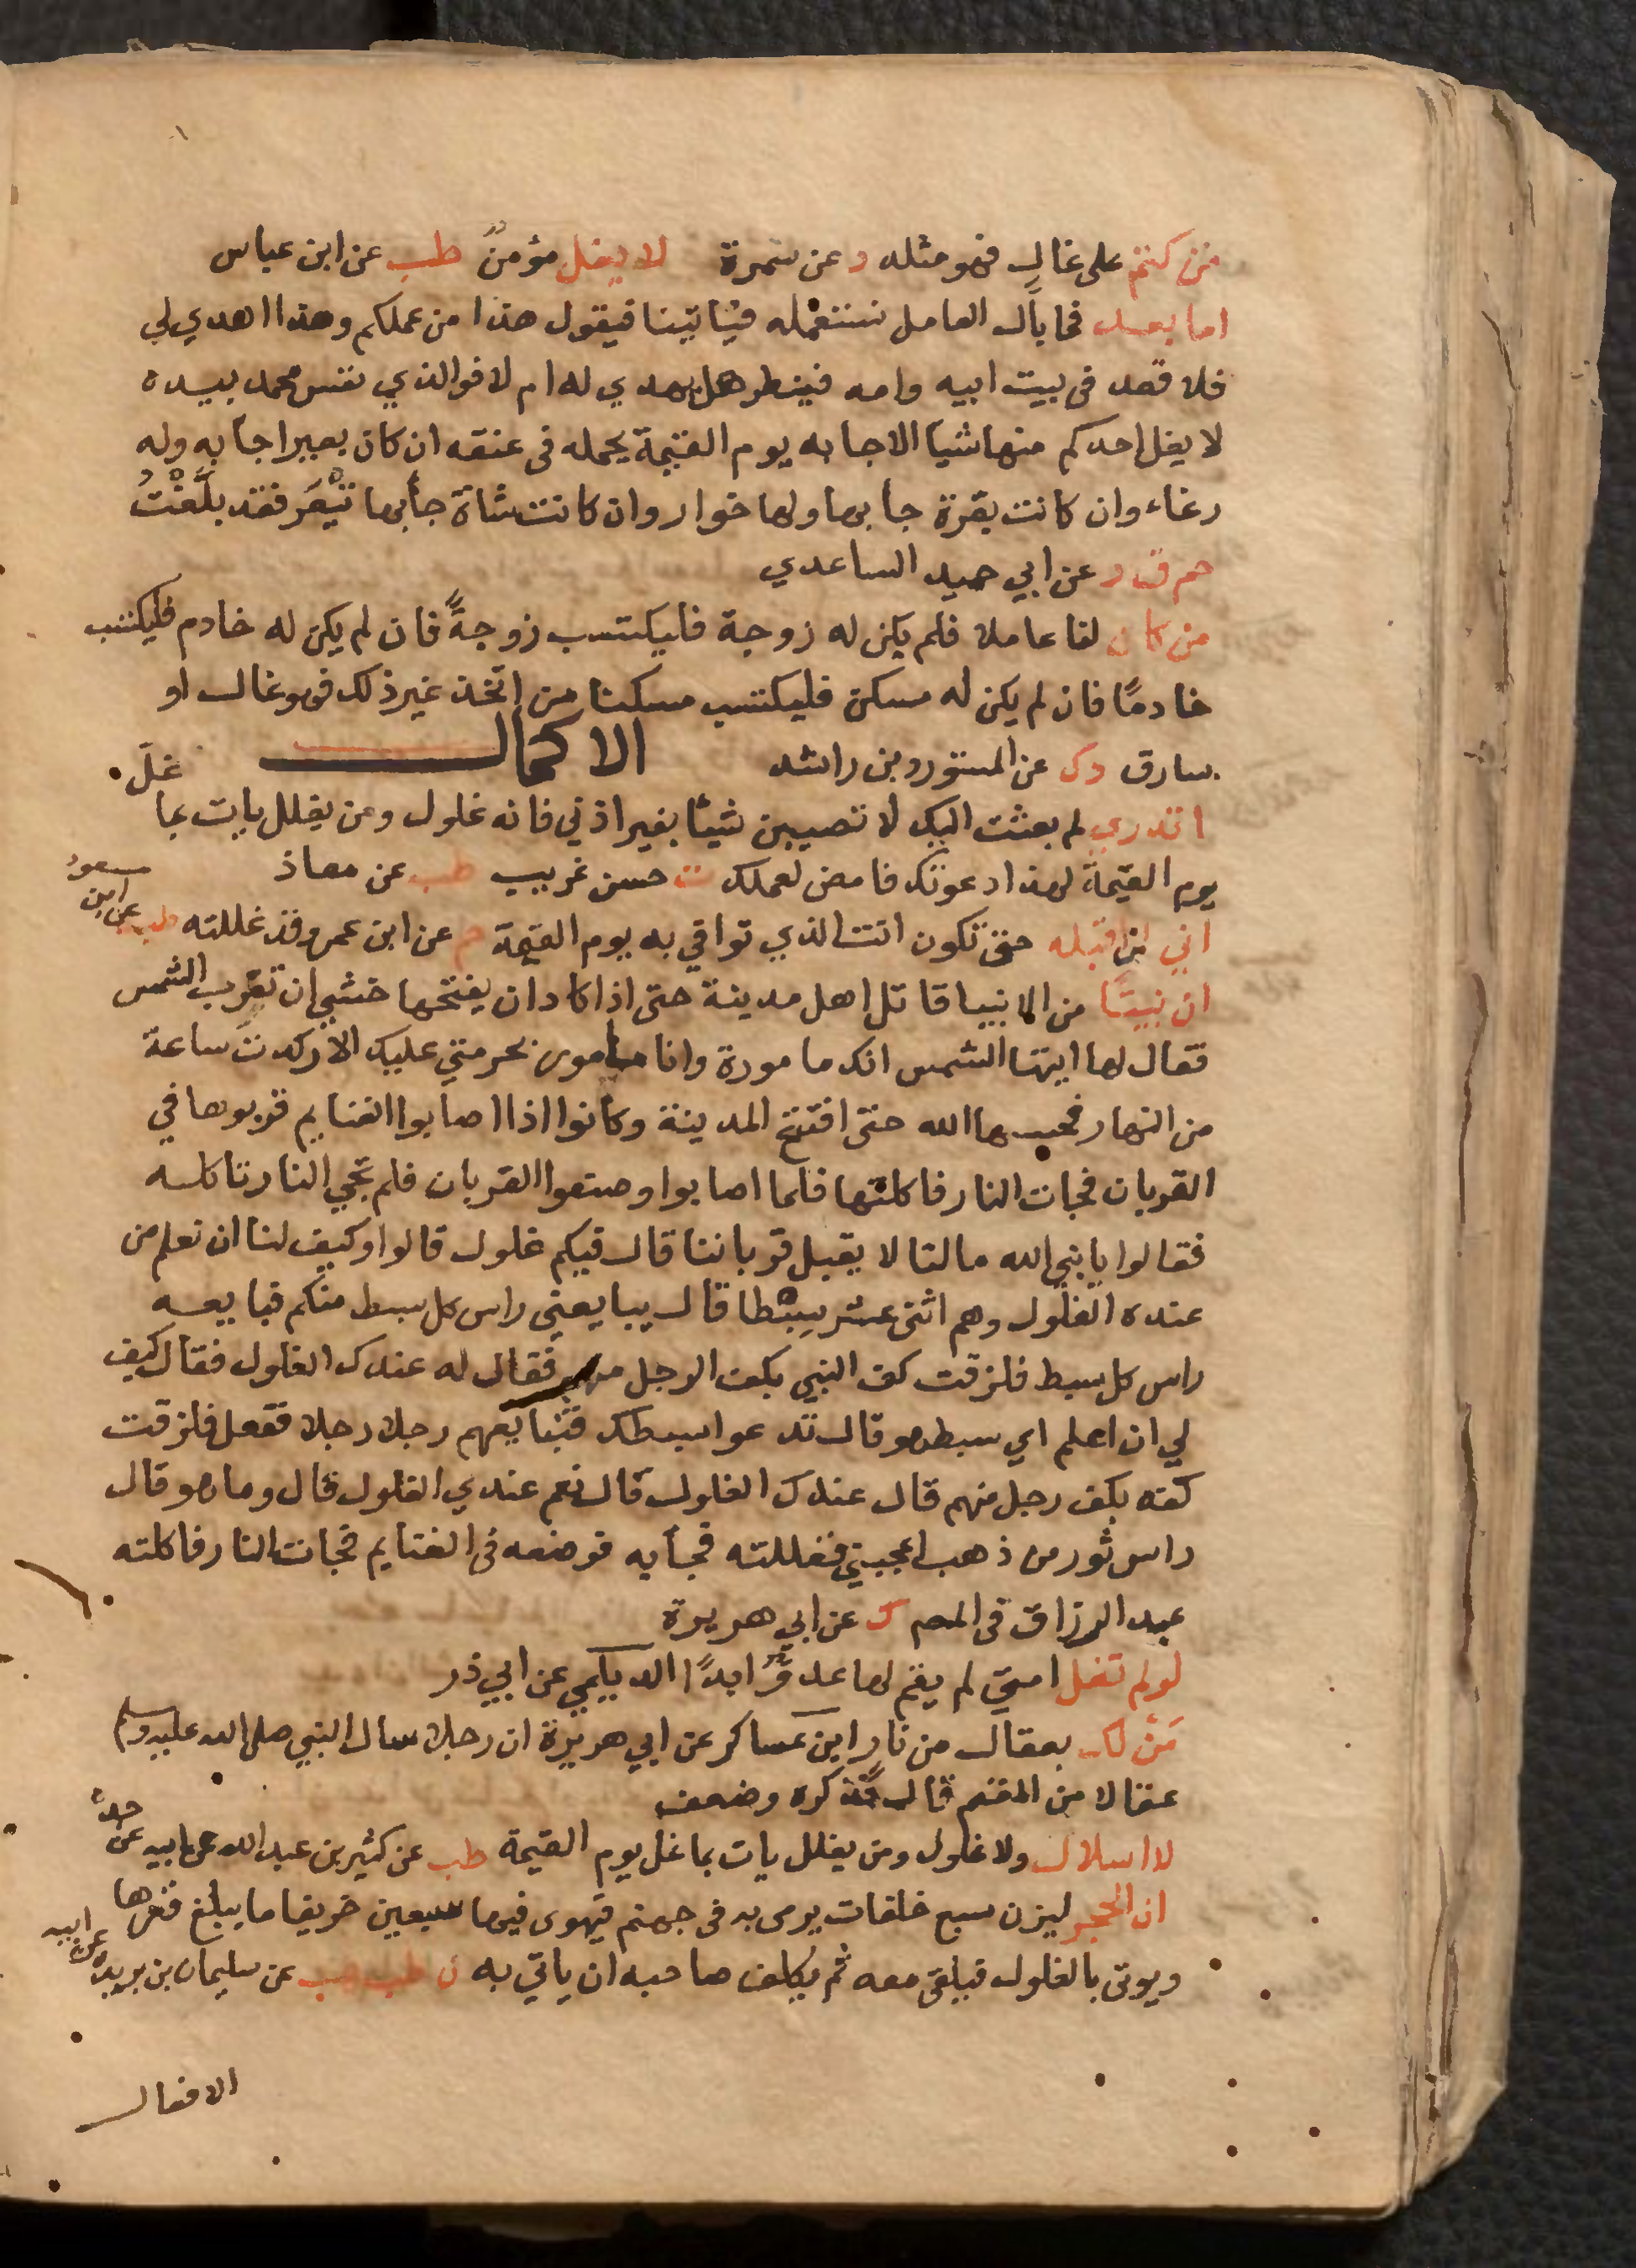 من كتم على غالٍ فهو مثله د عن سمرة لا يغل مؤمنٌ طب عن ابن عباس
اما بعد فما بال العامل نستعمله فياتينا فيقول هذا من عملكم وهذا اهدي لي
فلا قعد في بيت ابيه وامه فينطر هل يهدي له ام لا فوالذي نفس محمد بيده
لا يغل احدكم منها شيا الا جا به يوم القيمة يحمله في عنقه ان كان بعيرا جا به وله
رغاء وان كانت بقرة جا بها ولها خوار وان كانت شاة جا بها تَيْعَر فقد بلَّغْتُ
حم ق د عن ابي حميد الساعدي
من كان لنا عاملا فلم يكن له زوجة فليكتسب زوجةً فان لم يكن له خادم فليكتسب
خادمًا فان لم يكن له مسكن فليكتسب مسكنا من اتخذ غير ذلك فهو غال او
سارق د ك عن المستورد بن راشد الاكمال
غلَّ
اتدري لم بعثت اليك لا تصيبن شيئا بغير اذني فانه غلول ومن يغلل يات بما
يوم القيمة لهذا دعوتك فامض لعملك ت حسن غريب طب عن معاذ
اني لن اقبله حتى تكون انت الذي توافي به يوم القيمة م عن ابن عمرو قد غللته طب عن ابن مسعود
ان نبيًّا من الانبيا قاتل اهل مدينة حتى اذا كاد ان يفتحها خشي ان تغرب الشمس
فقال لها ايتها الشمس انك مامورة وانا مامور بحرمتي عليك الا ركدت ساعة
من النهار فحبسها الله حتى افتتح المدينة وكانوا اذا اصابوا الغنايم قربوها في
القربان فجات النار فاكلتها فلما اصابوا وضعوا القربان فلم تجي النار تاكله
فقالوا يا نبي الله مالنا لا يقبل قرباننا قال فيكم غلول قالوا وكيف لنا ان نعلم من
عنده الغلول وهم اثنى عشر سِبْطا قال يبايعني راس كل سبط منكم فبايعه
راس كل سبط فلزقت كف النبي بكف الرجل منهم فقال له عندك الغلول فقال كيف
لي ان اعلم اي سبط هو قال تدعوا سبطك فتبايعهم رجلا رجلا ففعل فلزقت
كفه بكف رجل منهم قال عندك الغلول قال نعم عندي الغلول قال وما هو قال
راس ثور من ذهب اعجبني فغللته فجا به فوضعه في الغنايم فجات النار فاكلته
عبد الرزاق في المص ك عن ابي هريرة
لو لم تغل امتي لم يقم لها عدوٌّ ابدًا الديلمي عن ابي ذر
مَنْ لك بعقال من نار ابن عساكر عن ابي هريرة ان رجلا سال النبي صلى الله عليه وسلم
عقالا من المغنم قال فذكره وضعف
لا اسلال ولا غلول ومن يغلل يات بما غل يوم القيمة طب عن كثير بن عبد الله عن ابيه عن جده
ان الحجر ليزن سبع خلفات يرمى به في جهنم فيهوى فيها سبعين خريفا ما يبلغ قعرها
ويوتى بالغلول فيلقى معه ثم يكلف صاحبه ان ياتي به ن طب هب عن سليمان بن بريدة عن ابيه
الافعال